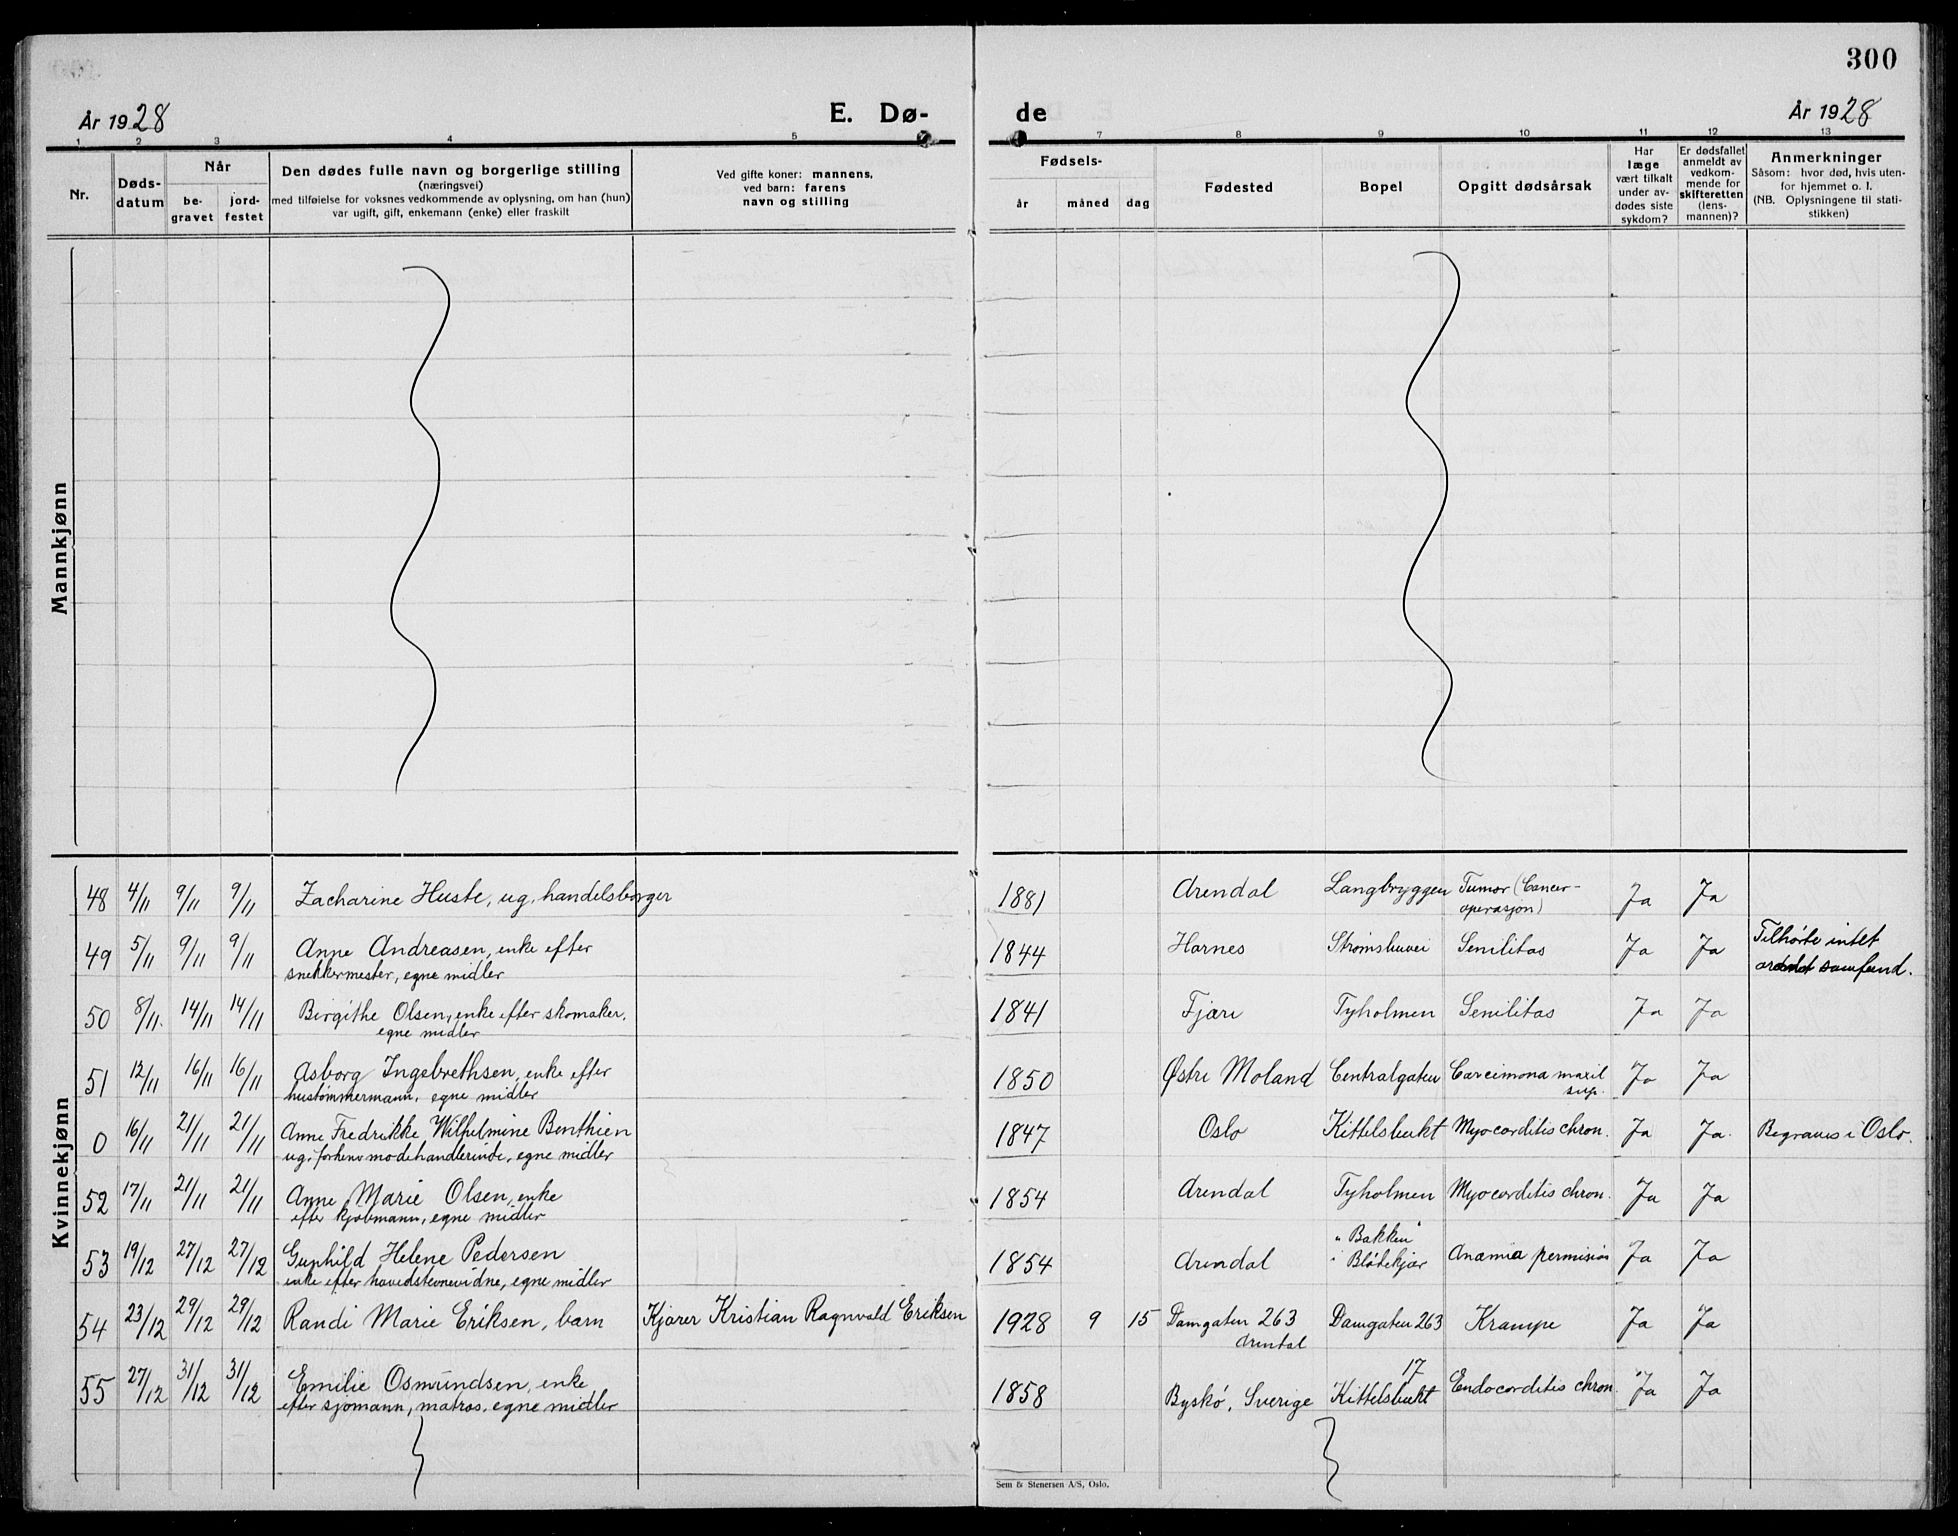 300
År 1928
E. Dø-
de
År 1928
1 2 3 4 5 7 8 9 10 11 12 13
Nr.
Døds-
datum
Når
be-
gravet
jord-
festet
Den dødes fulle navn og borgerlige stilling
(næringsvei)
med tilføielse for voksnes vedkommende av oplysning, om han (hun)
var ugift, gift, enkemann (enke) eller fraskilt
Ved gifte koner: mannens,
ved barn: farens
navn og stilling
Fødsels-
år måned dag
Fødested
Bopel
Opgitt dødsårsak
Har
læge
vært tilkalt
under av-
dødes siste
sykdom?
Er dødsfallet
anmeldt av
vedkom-
mende for
skifteretten
(lens-
mannen)?
Anmerkninger
Såsom: hvor død, hvis uten-
for hjemmet o. l.
(NB. Oplysningene til stati-
stikken)
Mannkjønn
Kvinnekjønn
48 4/11 9/11 9/11 Zacharine Huste, ug. handelsborger 1881 Arendal Langbryggen Tumor (Cancer-
operasjon) Ja Ja
49 5/11 9/11 9/11 Anne Andreasen, enke efter 1844 Harnes Strømsbuvei Senilitas Ja Ja Tilhørte intet
snekkermester, egne midler samfund.
50 8/11. 14/11 14/11 Birgithe Olsen, enke efter skomaker. 1841 Fjære Tyholmen Senilitas Ja Ja
egne midler
51 12/11 16/11 16/11 Asborg Ingebrethsen, enke efter 1850 Østre Moland Centralgaten Carcimona maxil Ja Ja
hustømmermann, egne midler sup.
0 16/11 21/11 21/11 Anne Fredrikke Wilhelmine Benthien 1847 Oslo Kittelsbukt Myocarditis chron. Ja Ja. Begraves i Oslo.
ug. forhenv modehandlerinde, egne midler
52 17/11 21/11 21/11 Anne Marie Olsen, enke 1854 Arendal Tyholmen Myocarditis chron. Ja Ja
efter kjøbmann, egne midler
53 19/12 27/12 27/12 Gunhild Helene Pedersen 1854 Arendal "Bakken" i Blødekjær Anæmia permisiøs Ja Ja
enke efter hovedstevnevidne, egne midler
54 23/12 29/12 29/12 Randi Marie Eriksen, barn Kjører Kristian Ragnvald Eriksen 1928 9 15 Damgaten 263 Damgaten 263 Krampe Ja Ja
Arendal
55 27/12 31/12 31/12 Emilie Osmundsen, enke 1858 Byskö, Sverige 17 Kittelsbukt Endocarditis chron. Ja Ja
efter sjømann, matros. egne midler
Sem & Stenersen A/S, Oslo.